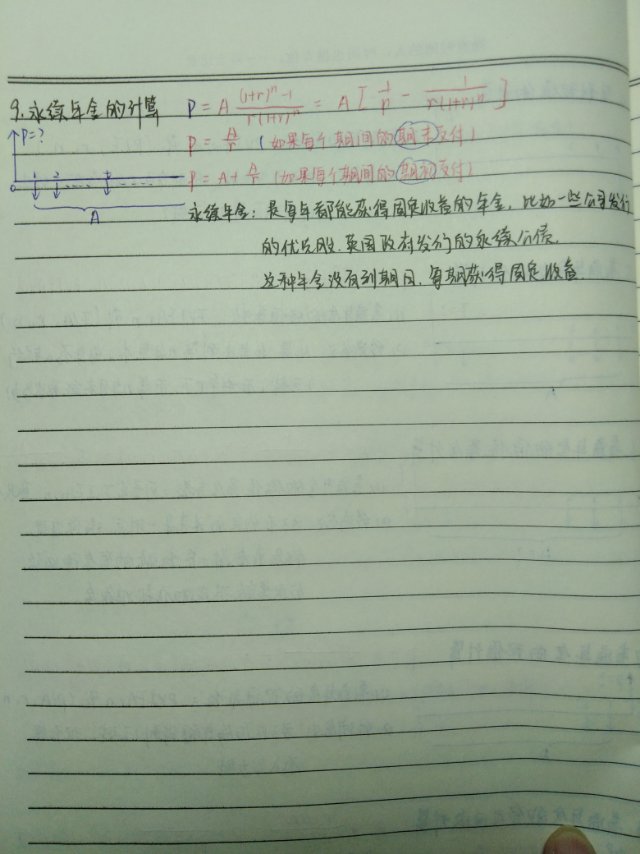 9.永续年金的计算 P = A \frac{(1+r)^n-1}{r(1+r)^n} = A[\frac{1}{r} - \frac{1}{r(1+r)^n}]
P=?
P = \frac{A}{r} (如果每个期间的期末支付)
P = A + \frac{A}{r} (如果每个期间的期初支付)
0 1 2
A
永续年金：是每年都能获得固定收益的年金，比如一些公司发行
的优先股、英国政府发行的永续公债.
这种年金没有到期日，每期获得固定收益.